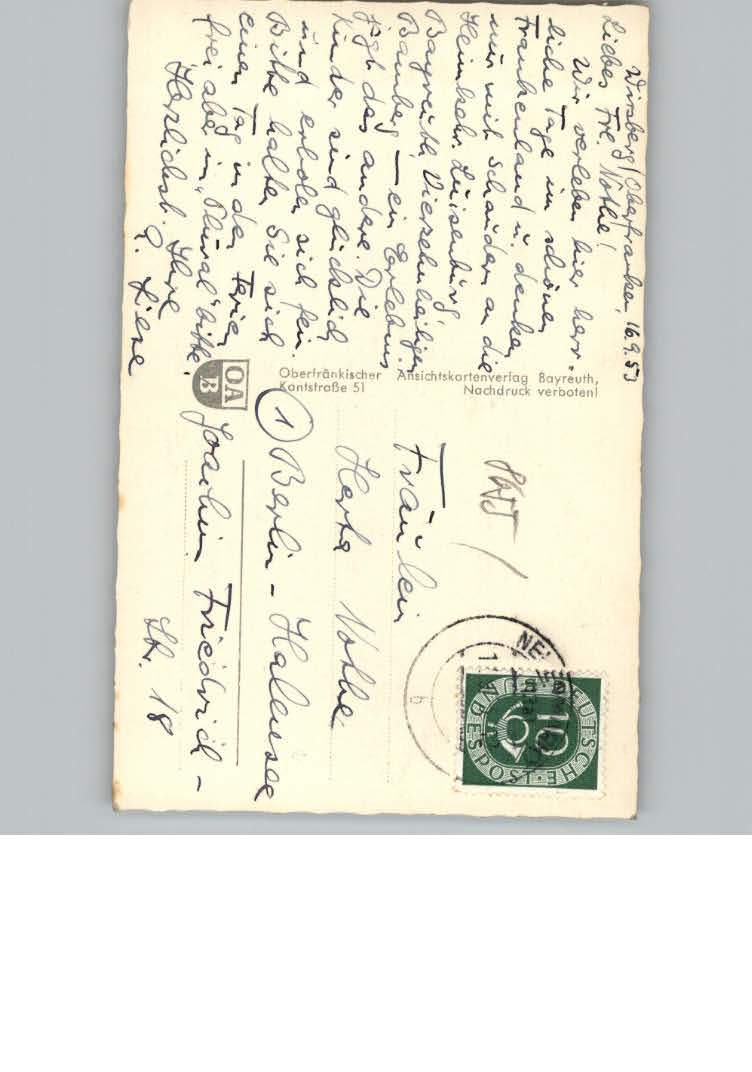 Wirsberg/Oberfranken, 16.9.53
Liebes Frl. Nothe!
Wir verleben hier herr-
liche Tage im schönen
Frankenland u. denken
nur mit Schaudern an die
Heimkehr. Luisenburg,
Bayreuth, Vierzehnheiligen
Bamberg – ein Erlebnis
jagt das andere. Die
Kinder sind glücklich
und erholen sich fein.
Bitte halten Sie sich
einen Tag in den Ferien
frei aber im "Plural" bitte.
Herzlichst Ihre
L. Liese
OA
B
Oberfränkischer Ansichtskartenverlag Bayreuth,
Kantstraße 51 Nachdruck verboten!
Fräulein
Herta Nothe
1 Berlin-Halensee
Joachim Friedrich-
Str. 18
NE
b
10
DEUTSCHE BUNDESPOST